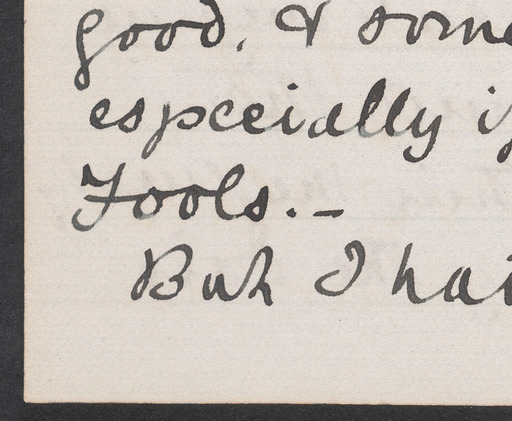 good, & some
especially if
Fools. —
But I hat